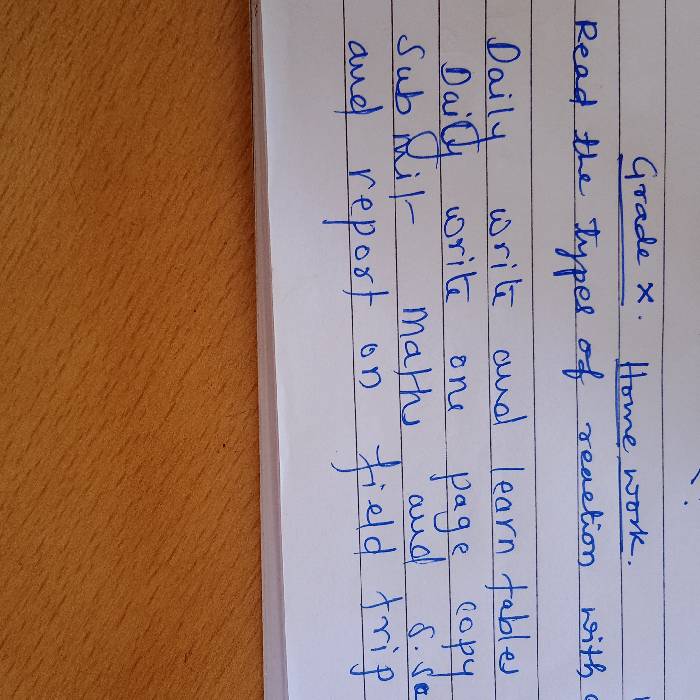 Grade X. Home work.
Read the types of reaction with
Daily write and learn tables
Daily write one page copy
Submit Maths and S.Sc
and report on field trip